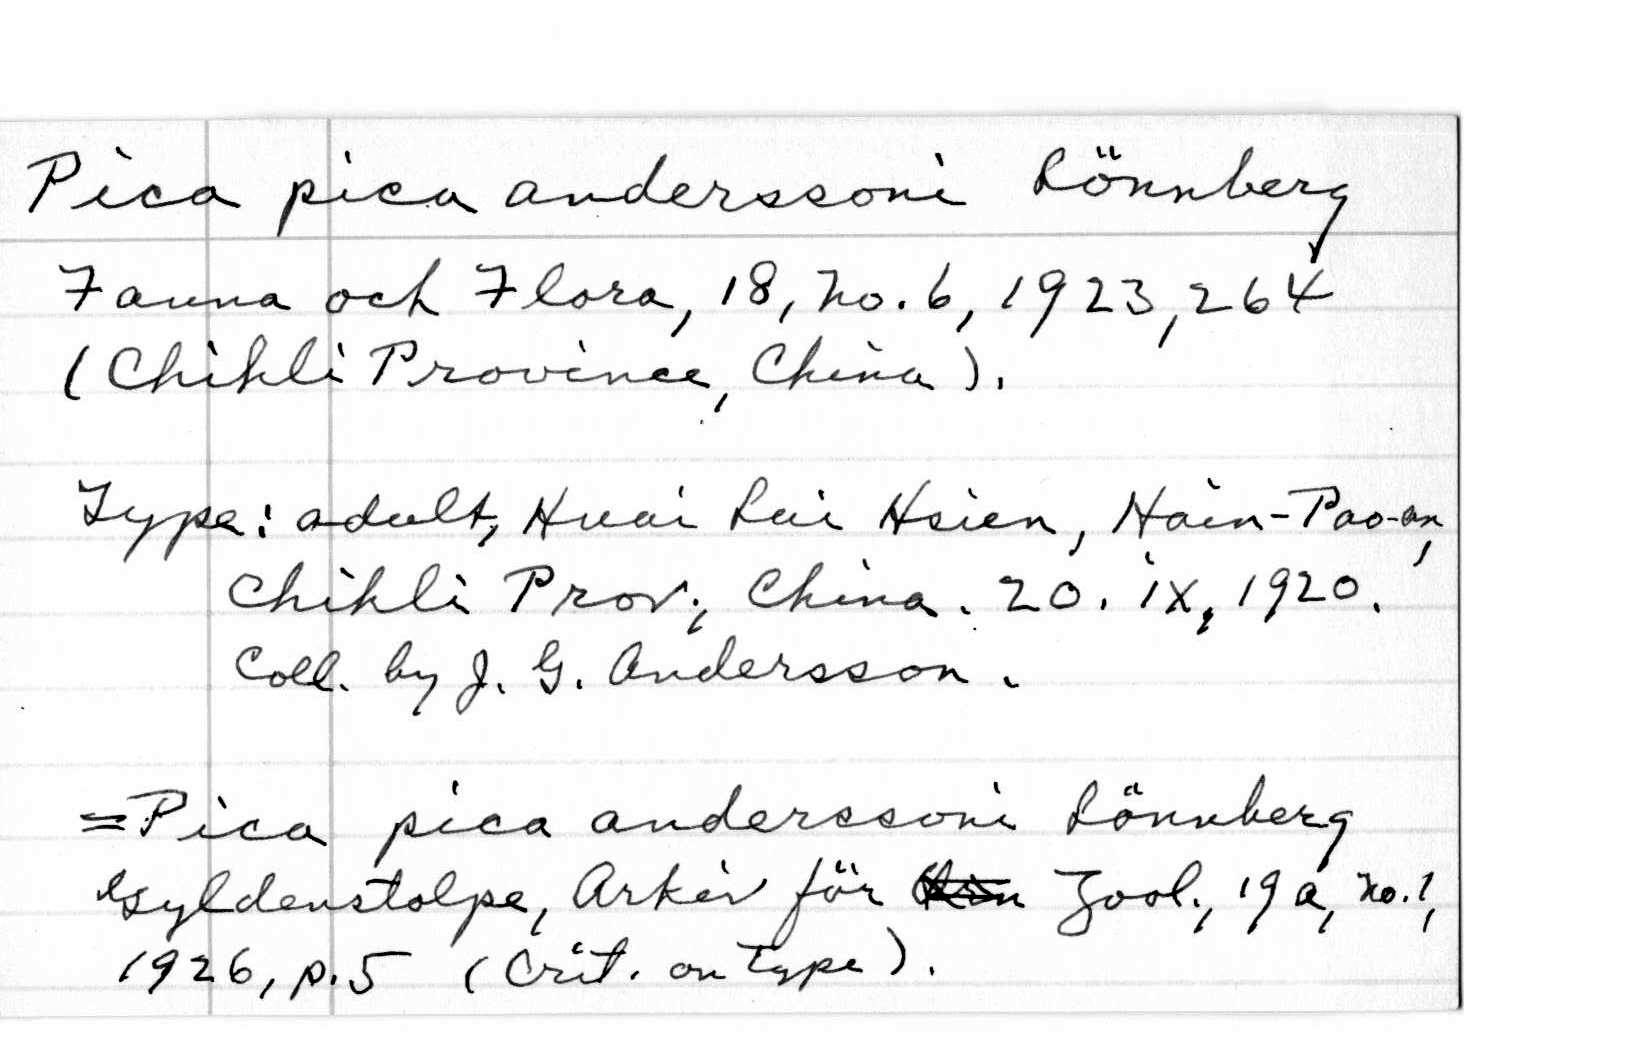 Pica pica anderssoni Lönnberg
Fauna och Flora, 18, no. 6, 1923, 264
(Chihli Province, China).
Type: adult, Huai Lai Hsien, Hsin-Pao-an,
Chihli Prov., China. 20. ix, 1920.
Coll. by J. G. Andersson.
=Pica pica anderssoni Lönnberg
Gyldenstolpe, Arkiv för Zool., 19a, no. 1,
1926, p. 5 (Crit. on type).